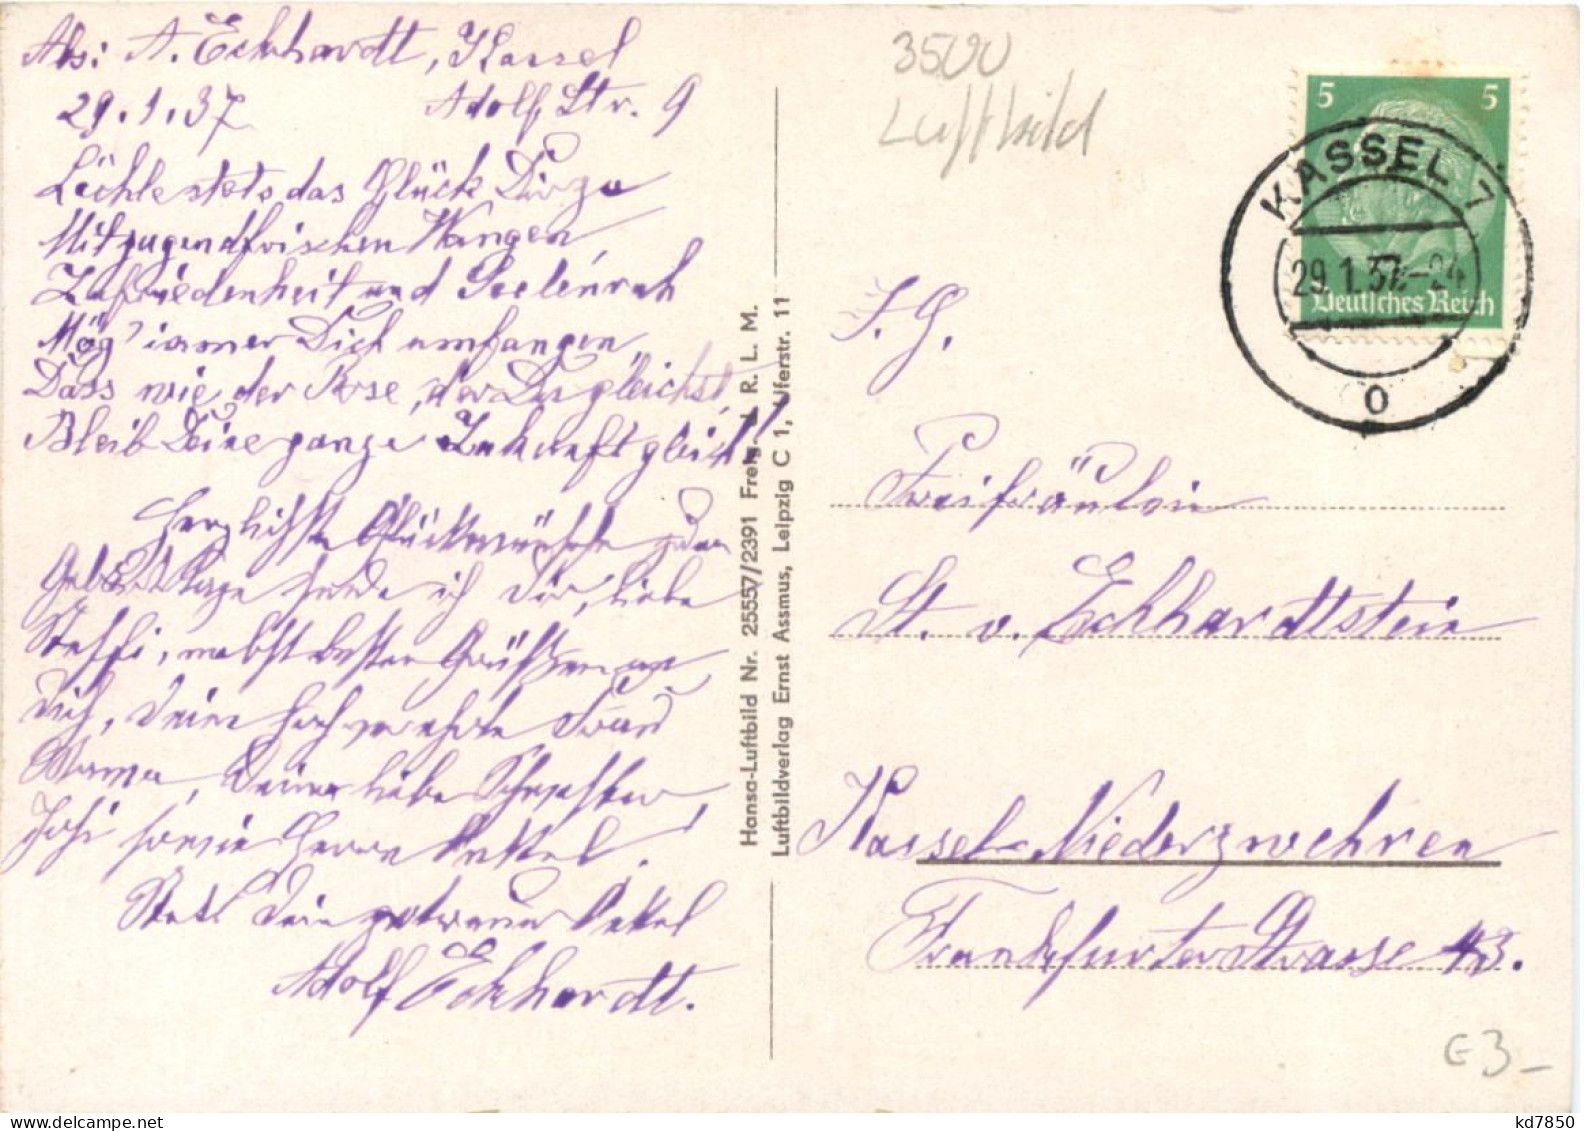 Abs: A. Eckhardt, Kassel
29.1.37 Adolfstr. 9
Lächle stets das Glück Dir zu
Mit jugendfrischen Wangen,
Zufriedenheit und Seelenruh
Mög' immer Dich umfangen,
Dass wie der Rose, der Du gleichst,
Bleib Deine ganze Zukunft gleich!
Herzlichste Glückwünsche zum
Geburtstage sende ich Dir, liebe
Steffi, nebst besten Grüßen an
Dich, Deine hochverehrte Frau
Mama, Deine liebe Schwester,
sowie Herrn Onkel.
Stets Dein getreuer Onkel
Adolf Eckhardt.
Hansa-Luftbild Nr. 25557/2391 Freig. R. L. M.
Luftbildverlag Ernst Assmus, Leipzig C 1, Uferstr. 11
3500
Luftbild
5 5
Deutsches Reich
KASSEL 7
29.1.37.-24
o
I. H.
Freifräulein
St. v. Eckhardtstein
Kassel-Niederzwehren
Frankfurter Strasse 43.
€3-
kd7850